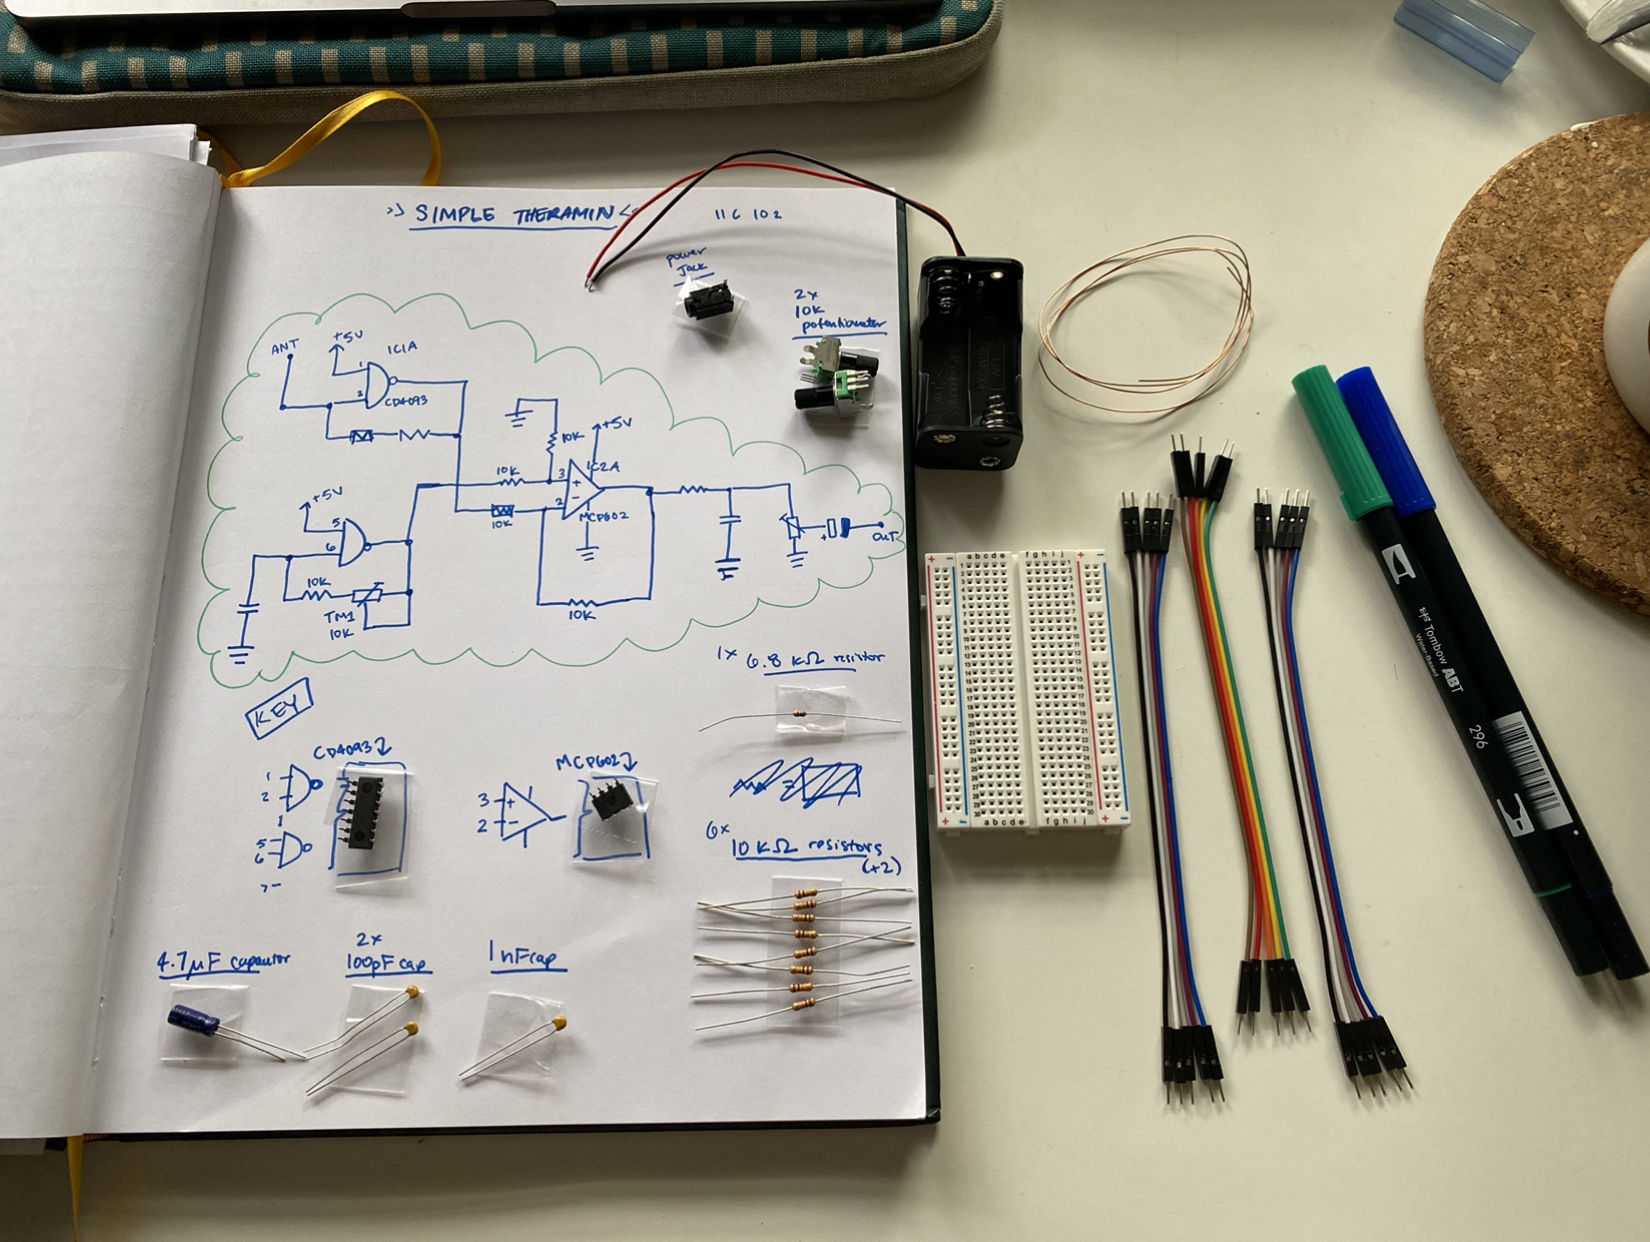 SIMPLE THERAMIN
power
Jack
2x
10K
potentiometer
ANT
+5V
IC1A
1
2
CD4093
10K
+5V
10K
3
IC2A
2
10K
MCP602
+5V
5
6
10K
TM1
10K
10K
+
OUT
KEY
1x 6.8 KΩ resistor
CD4093
1
2
5
6
MCP602
3
2
+
-
6x
10 KΩ resistors
(+2)
4.7µF capacitor
2x
100pF cap
1nF cap
a b c d e
f g h i j
a b c d e
f g h i j
Tombow ABT
Water-Based
296